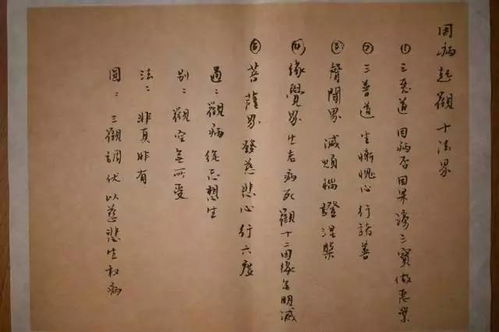 因病起觀十法界
①三惡道 因病否因果謗三寶做惡業
②三善道 生慚愧心行諸善
③聲聞界 滅煩惱證涅槃
④緣覺界 生老病死觀十二因緣無明滅
⑤菩薩界 發慈悲心行六度
通：觀病從忘想生
別：觀空無所受
法：非真非有
圓：三觀調伏以慈悲生权病